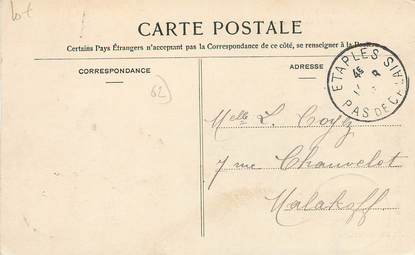 lot
CARTE POSTALE
Certains Pays Étrangers n'acceptant pas la Correspondance de ce côté, se renseigner à la
CORRESPONDANCE
ADRESSE
62
ÉTAPLES
PAS DE CALAIS
Melle L. Coyez
7 rue Chauvelot
Malakoff